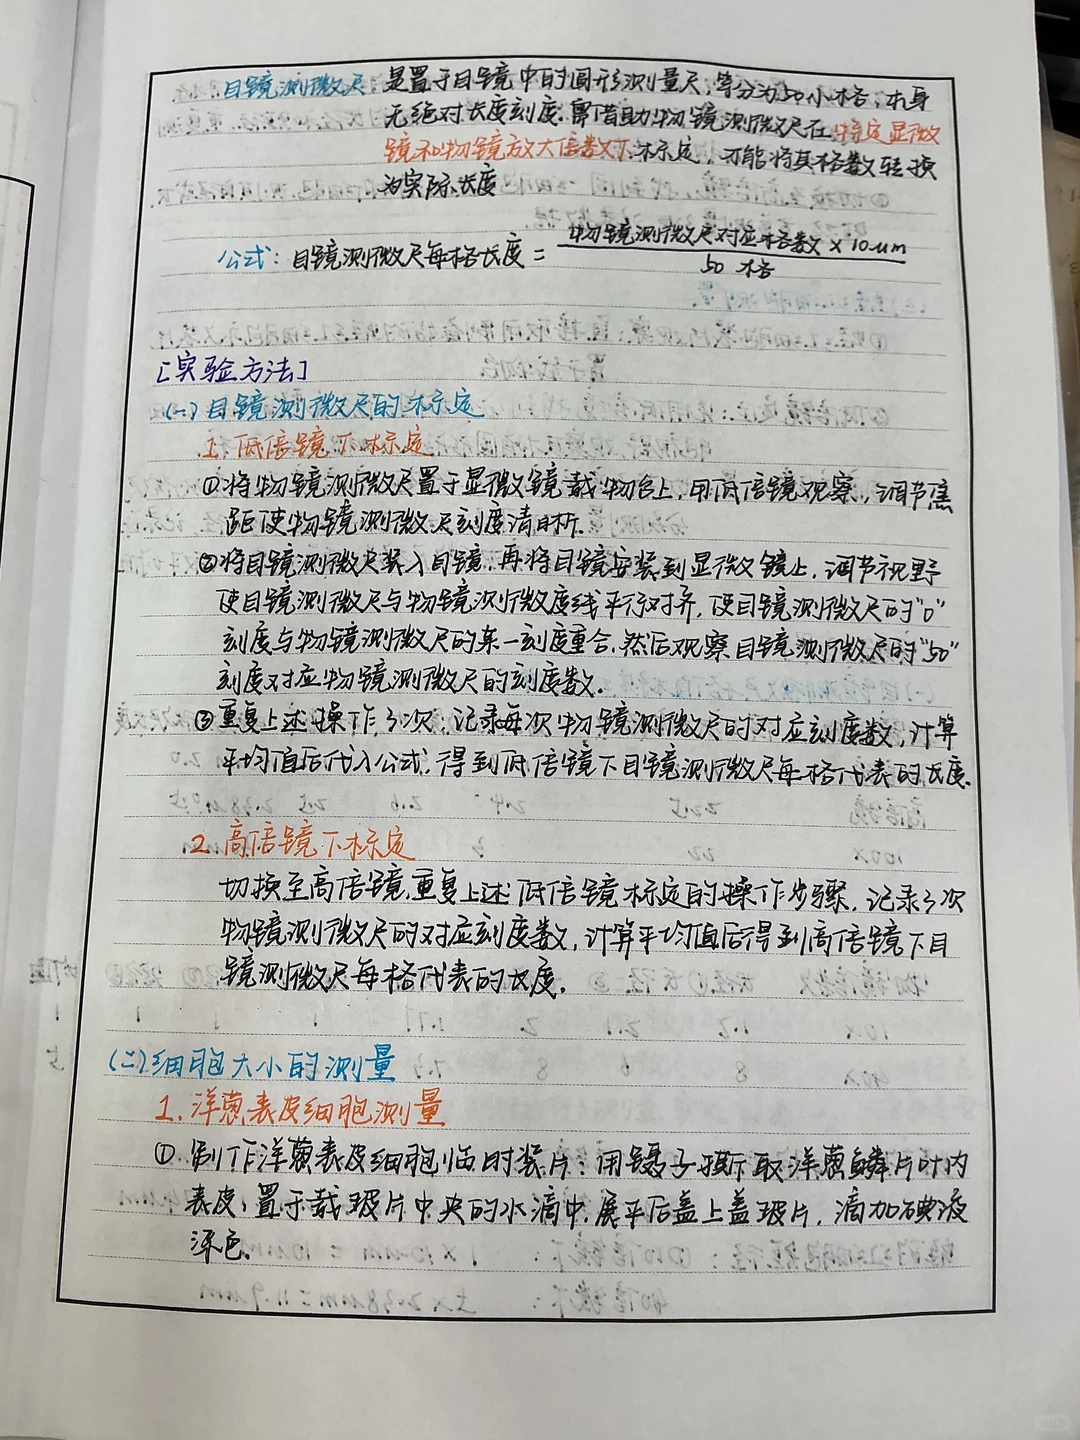 目镜测微尺：是置于目镜中的圆形测量尺，等分为50小格，本身
无绝对长度刻度.需借助物镜测微尺在特定显微
镜和物镜放大倍数下标定，才能将其格数转换
为实际长度
公式：目镜测微尺每格长度 = 物镜测微尺对应格数 × 10μm
50 格
[实验方法]
(一) 目镜测微尺的标定
1. 低倍镜下标定
①将物镜测微尺置于显微镜载物台上，用低倍镜观察，调节焦
距使物镜测微尺刻度清晰.
②将目镜测微尺装入目镜，再将目镜安装到显微镜上，调节视野
使目镜测微尺与物镜测微度线平行对齐，使目镜测微尺的"0"
刻度与物镜测微尺的某一刻度重合，然后观察目镜测微尺的"50"
刻度对应物镜测微尺的刻度数.
③重复上述操作3次，记录每次物镜测微尺的对应刻度数，计算
平均值后代入公式，得到低倍镜下目镜测微尺每格代表的长度.
2. 高倍镜下标定
切换至高倍镜，重复上述低倍镜标定的操作步骤，记录3次
物镜测微尺的对应刻度数，计算平均值后得到高倍镜下目
镜测微尺每格代表的长度.
(二) 细胞大小的测量
1. 洋葱表皮细胞测量
① 制作洋葱表皮细胞临时装片：用镊子撕下取洋葱鳞片叶内
表皮，置于载玻片中央的水滴中，展平后盖上盖玻片，滴加碘液
染色.